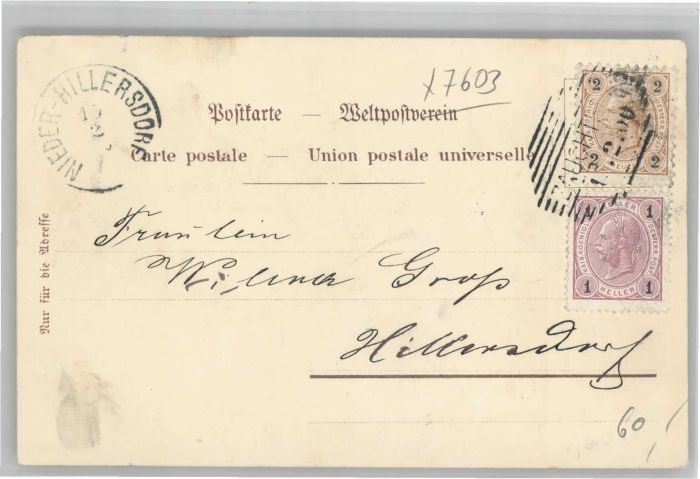 x7603
NIEDER-HILLERSDORF
Postkarte — Weltpostverein
Carte postale — Union postale universelle
2 2
2 2
1 1
HELLER
Nur für die Adresse
Fräulein
Groß
Hillersdorf
60,